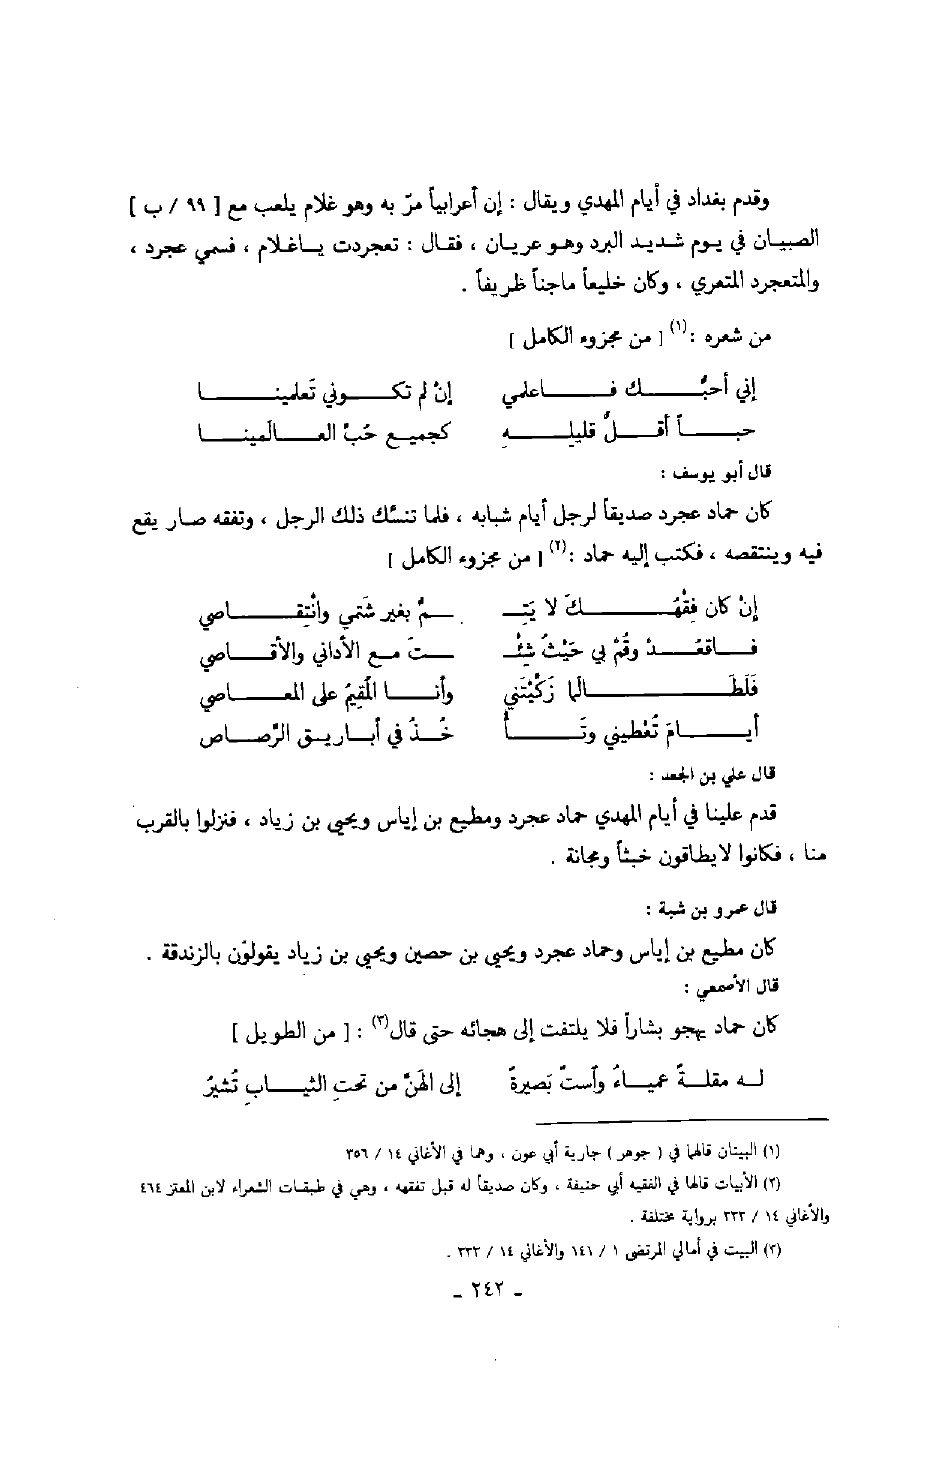 وقدم بغداد في أيام المهدي ويقال : إن أعرابياً مرّ به وهو غلام يلعب مع [ ٩٩ / ب ]
الصبيان في يوم شديد البرد وهو عريان ، فقال : تعجردت ياغلام ، فسمي عجرد ،
والمتعجرد المتعري ، وكان خليعاً ماجناً ظريفاً .
من شعره :(١) [ من مجزوء الكامل ]
إني أحبُّك فاعلمي إنْ لم تكوني تَعلمينا
حباً أقلُّ قليله كجميع حُبِّ العالمينا
قال أبو يوسف :
كان حماد عجرد صديقاً لرجل أيام شبابه ، فلما تنسَّك ذلك الرجل ، وتفقه صار يقع
فيه وينتقصه ، فكتب إليه حماد :(٢) [ من مجزوء الكامل ]
إنْ كان فِقْهُكَ لا يَتِمُّ بغير شتمي وانْتِقاصي
فاقعُدْ وقُمْ بي حَيْثُ شِئْتَ مع الأداني والأقاصي
فَلَطَالما زَكَّيْتَني وأنا المُقيمُ على المعاصي
أيامَ تُعْطيني وتَأْخُذُ في أباريق الرَّصاص
قال علي بن الجعد :
قدم علينا في أيام المهدي حماد عجرد ومطيع بن إياس ويحيى بن زياد ، فنزلوا بالقرب
منا ، فكانوا لا يطاقون خبثاً ومجانة .
قال عمرو بن شبة :
كان مطيع بن إياس وحماد عجرد ويحيى بن حصين ويحيى بن زياد يقولون بالزندقة .
قال الأصمعي :
كان حماد يهجو بشاراً فلا يلتفت إلى هجائه حتى قال(٣) : [ من الطويل ]
له مقلةٌ عمياءُ وآستٌ بَصيرةٌ إلى الهَنِّ من تحتِ الثيابِ تُشيرُ
(١) البيتان قالهما في ( جوهر ) جارية أبي عون ، وهما في الأغاني ١٤ / ٣٥٦
(٢) الأبيات قالها في الفقيه أبي حنيفة ، وكان صديقاً له قبل تفقهه ، وهي في طبقات الشعراء لابن المعتز ٤٦٤
والأغاني ١٤ / ٣٣٣ برواية مختلفة .
(٣) البيت في أمالي المرتضى ١ / ١٤١ والأغاني ١٤ / ٣٣٢ .
- ٢٤٢ -